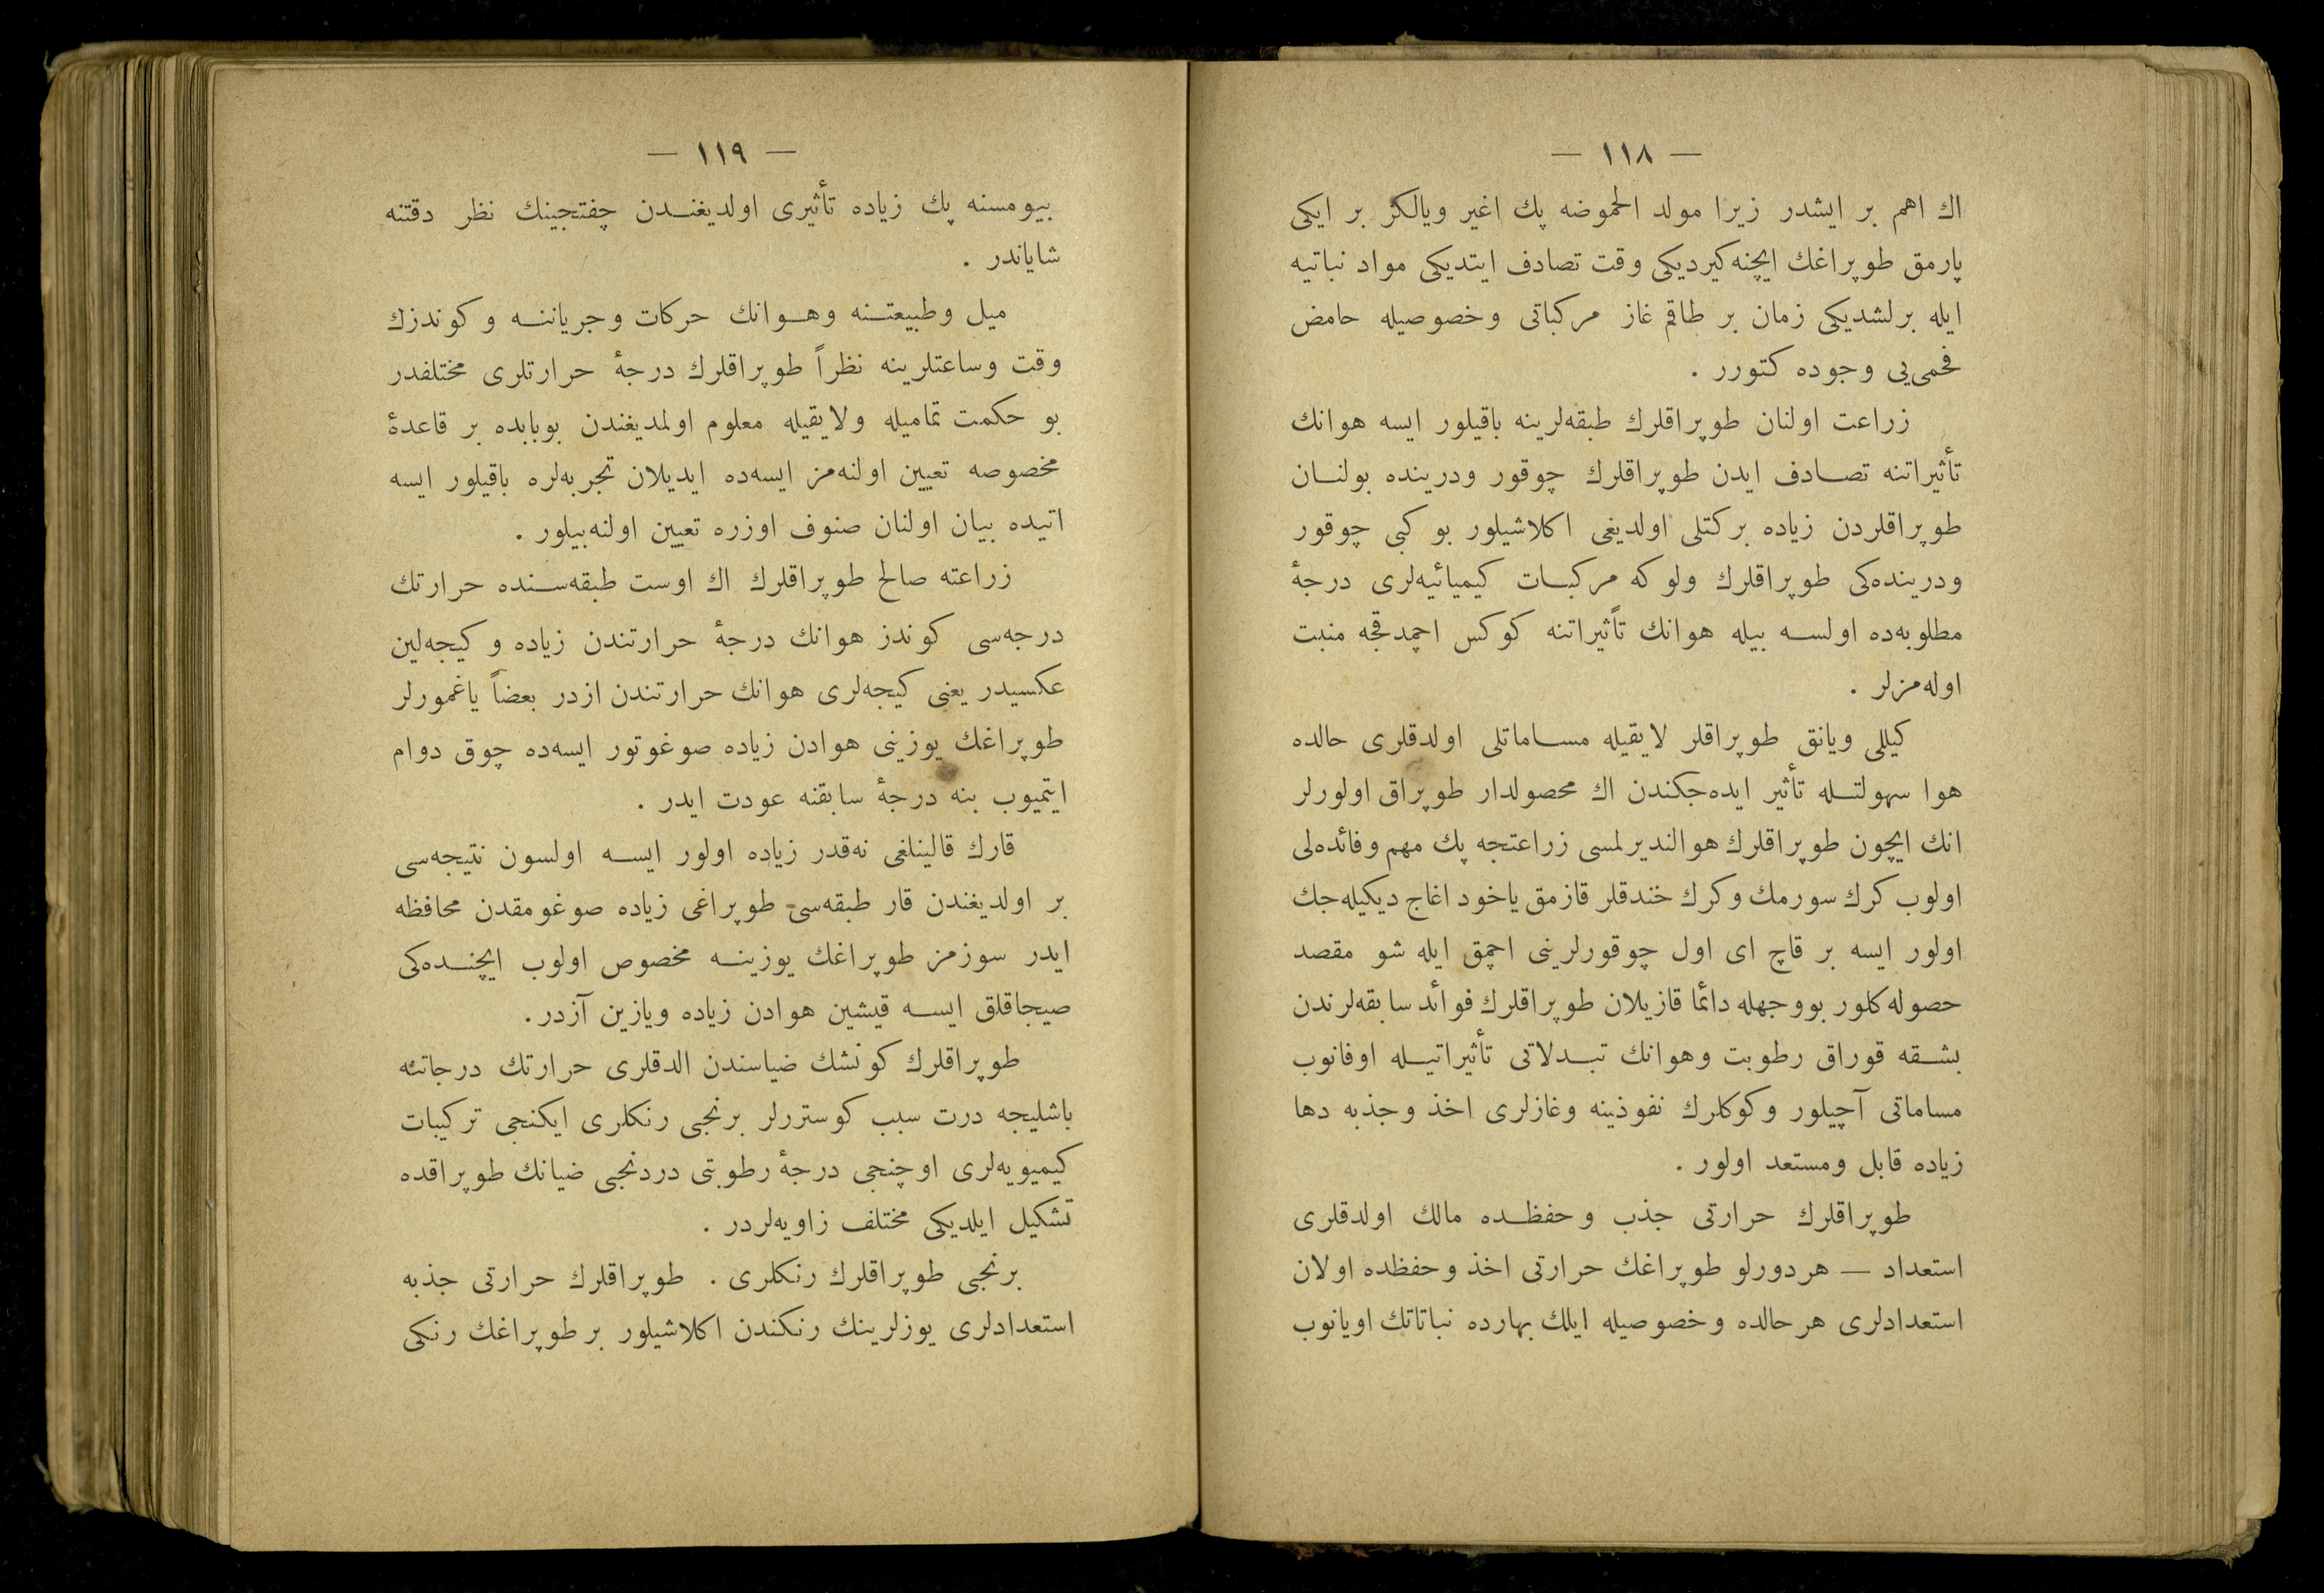 — ١١٨ —
اك اهم بر ايشدر زيرا مولد الحموضه پك اغير ويالكز بر ايكی
پارمق طوپراغك ايچنه كيرديكی وقت تصادف ايتديكی مواد نباتيه
ايله برلشديكی زمان بر طاقم غاز مركباتی وخصوصيله حامض
فحمی‌يی وجوده كتورر .
زراعت اولنان طوپراقلرك طبقه‌لرينه باقيلور ايسه هوانك
تأثيراتنه تصادف ايدن طوپراقلرك چوقور ودرينده بولنان
طوپراقلردن زياده بركتلی اولديغی اكلاشيلور بو كبی چوقور
ودرينده‌كی طوپراقلرك ولو كه مركبات كيميائيه‌لری درجهٔ
مطلوبه‌ده اولسه بيله هوانك تأثيراتنه كوكس اچمدقجه منبت
اوله‌مزلر .
كيللی ويانق طوپراقلر لايقيله مساماتلی اولدقلری حالده
هوا سهولتله تأثير ايده‌جكندن اك محصولدار طوپراق اولورلر
انك ايچون طوپراقلرك هوالنديرلمسی زراعتجه پك مهم وفائده‌لی
اولوب كرك سورمك وكرك خندقلر قازمق ياخود اغاج ديكيله‌جك
اولور ايسه بر قاچ ای اول چوقورلرينی اچمق ايله شو مقصد
حصوله كلور بووجهله دائما قازيلان طوپراقلرك فوائد سابقه‌لرندن
بشقه قوراق رطوبت وهوانك تبدلاتی تأثيراتيله اوفانوب
مساماتی آچيلور وكوكلرك نفوذينه وغازلری اخذ وجذبه دها
زياده قابل ومستعد اولور .
طوپراقلرك حرارتی جذب وحفظده مالك اولدقلری
استعداد — هردورلو طوپراغك حرارتی اخذ وحفظده اولان
استعدادلری هرحالده وخصوصيله ايلك بهارده نباتاتك اويانوب
— ١١٩ —
بيومسنه پك زياده تأثيری اولديغندن چفتجينك نظر دقتنه
شاياندر .
ميل وطبيعتنه وهوانك حركات وجرياننه وكوندزك
وقت وساعتلرينه نظراً طوپراقلرك درجهٔ حرارتلری مختلفدر
بو حكمت تماميله ولايقيله معلوم اولمديغندن بوبابده بر قاعدهٔ
مخصوصه تعيين اولنه‌مز ايسه‌ده ايديلان تجربه‌لره باقيلور ايسه
اتيده بيان اولنان صنوف اوزره تعيين اولنه‌بيلور .
زراعته صالح طوپراقلرك اك اوست طبقه‌سنده حرارتك
درجه‌سی كوندز هوانك درجهٔ حرارتندن زياده وكيجه‌لين
عكسيدر يعنی كيجه‌لری هوانك حرارتندن ازدر بعضاً ياغمورلر
طوپراغك يوزينی هوادن زياده صوغوتور ايسه‌ده چوق دوام
ايتميوب ينه درجهٔ سابقنه عودت ايدر .
قارك قالينلغی نه‌قدر زياده اولور ايسه اولسون نتيجه‌سی
بر اولديغندن قار طبقه‌سی طوپراغی زياده صوغومقدن محافظه
ايدر سوزمز طوپراغك يوزينه مخصوص اولوب ايچنده‌كی
صيجاقلق ايسه قيشين هوادن زياده ويازين آزدر .
طوپراقلرك كونشك ضياسندن الدقلری حرارتك درجاتنه
باشليجه درت سبب كوستررلر برنجی رنكلری ايكنجی تركيبات
كيميويه‌لری اوچنجی درجهٔ رطوبتی دردنجی ضيانك طوپراقده
تشكيل ايلديكی مختلف زاويه‌لردر .
برنجی طوپراقلرك رنكلری . طوپراقلرك حرارتی جذبه
استعدادلری يوزلرينك رنكندن اكلاشيلور بر طوپراغك رنكی